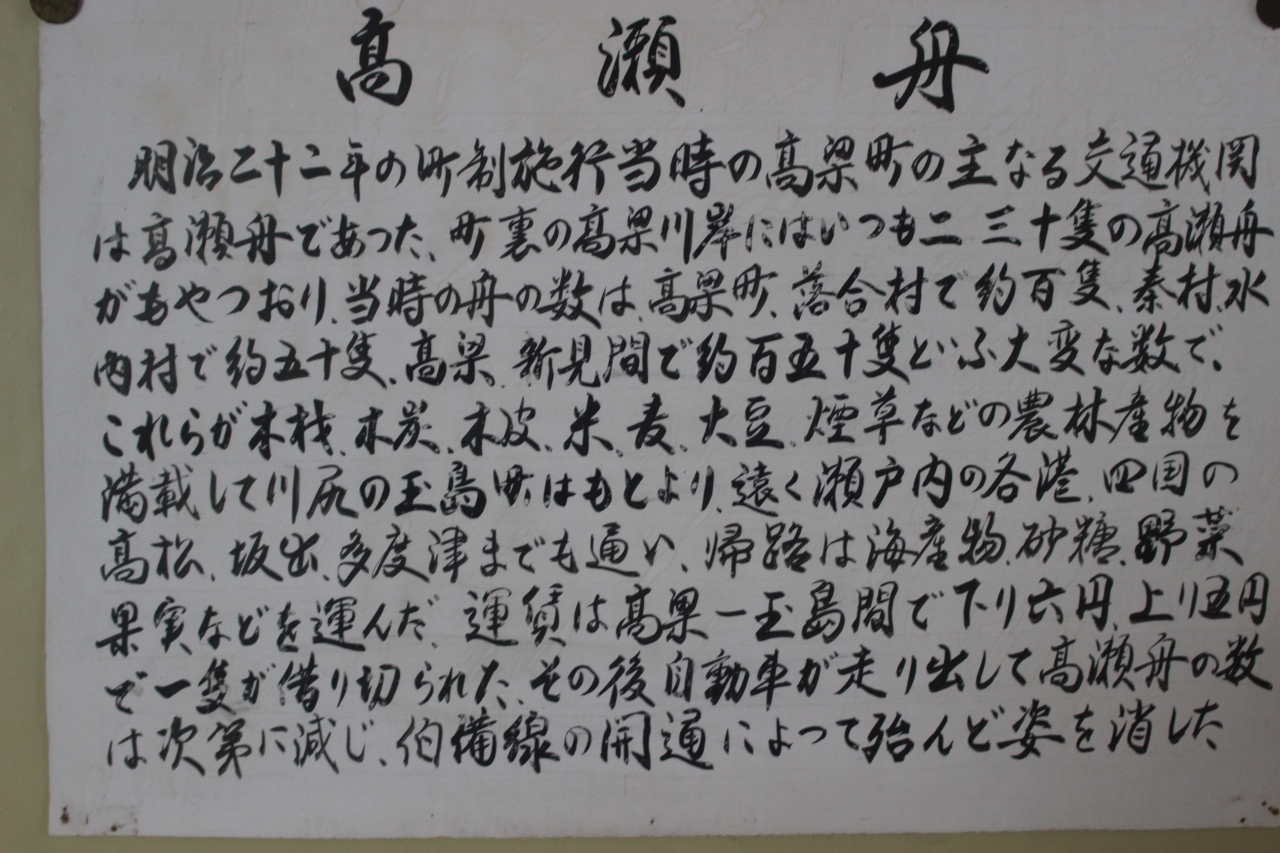 高瀬舟
明治二十二年の町制施行当時の高梁町の主なる交通機関
は高瀬舟であった、町裏の高梁川岸にはいつも二三十隻の高瀬舟
がもやつおり、当時の舟の数は、高梁町、落合村で約百隻、秦村、水
内村で約五十隻、高梁、新見間で約百五十隻といふ大変な数で、
これらが木材、木炭、木皮、米、麦、大豆、煙草などの農林産物を
満載して川尻の玉島町はもとより、遠く瀬戸内の各港、四国の
高松、坂出、多度津までも通い、帰路は海産物、砂糖、野菜
果実などを運んだ、運賃は高梁ー玉島間で下り六円、上り五円
で一隻が借り切られた、その後自動車が走り出して高瀬舟の数
は次第に減じ、伯備線の開通によって殆んど姿を消した